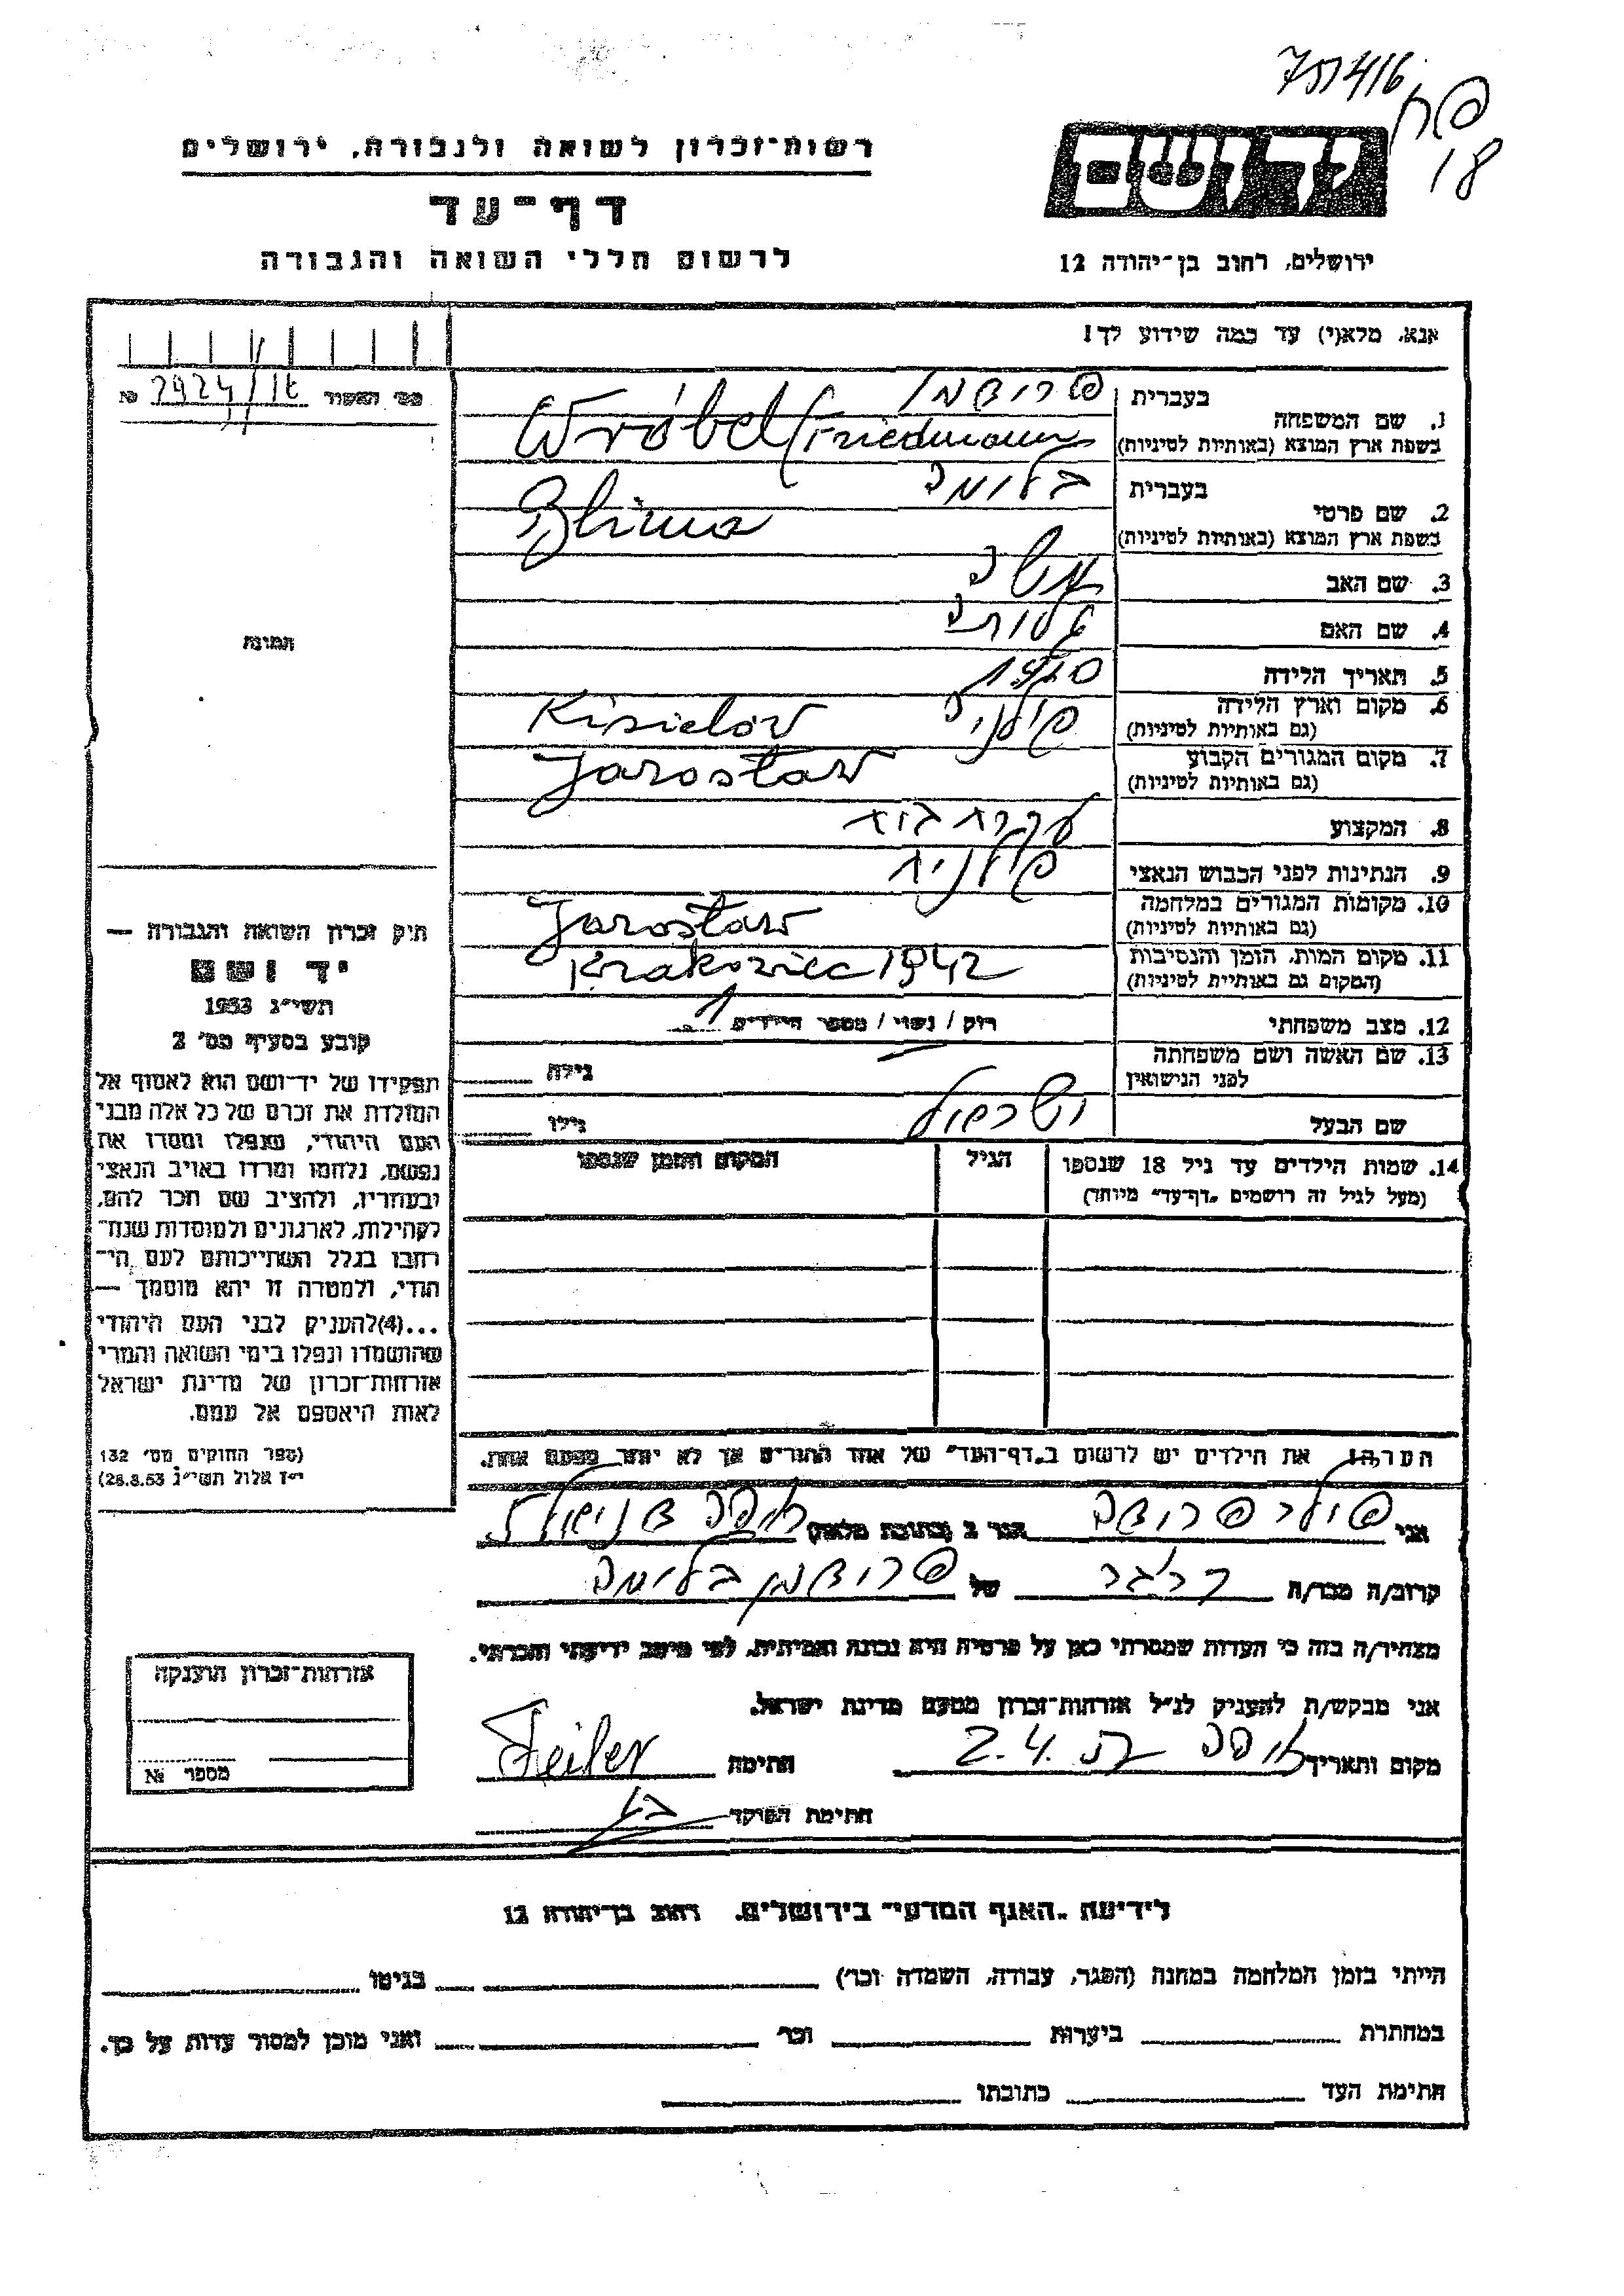 פח
18
יד ושם
רשות-זכרון לשואה ולגבורה, ירושלים
דף-עד
לרשום חללי השואה והגבורה
ירושלים, רחוב בן-יהודה 12
אנא, מלא(י) עד כמה שידוע לך!
בעברית פרידמן
1. שם המשפחה
בשפת ארץ המוצא (באותיות לטיניות) Wróbel/Friedmann
בעברית בלומה
2. שם פרטי
בשפת ארץ המוצא (באותיות לטיניות) Blima
3. שם האב משה
4. שם האם
5. תאריך הלידה
6. מקום וארץ הלידה
(גם באותיות לטיניות) Kisielów
7. מקום המגורים הקבוע Jarosław
(גם באותיות לטיניות)
8. המקצוע עקרת בית
9. הנתינות לפני הכבוש הנאצי פולנית
10. מקומות המגורים במלחמה Jarosław
(גם באותיות לטיניות)
11. מקום המות, הזמן והנסיבות Krakowiec 1942
(המקום גם באותיות לטיניות)
12. מצב משפחתי רוק / נשוי / מספר הילדים 1
13. שם האשה ושם משפחתה
לפני הנישואין גילה
שם הבעל גילו
14. שמות הילדים עד גיל 18 שנספו הגיל המקום והזמן שנספו
(מעל לגיל זה רושמים "דף-עד" מיוחד)
הערה: את הילדים יש לרשום ב"דף-העד" של אחד ההורים אך לא יותר מפעם אחת.
מס' האשור №
תמונה
חוק זכרון השואה והגבורה —
יד ושם
תשי"ג 1953
קובע בסעיף מס' 2
תפקידו של יד-ושם הוא לאסוף אל
המולדת את זכרם של כל אלה מבני
העם היהודי, שנפלו ומסרו את
נפשם, נלחמו ומרדו באויב הנאצי
ובעוזריו, ולהציב שם וזכר להם,
לקהילות, לארגונים ולמוסדות שנח-
רבו בגלל השתייכותם לעם הי-
הודי, ולמטרה זו יהא מוסמך —
...(4)להעניק לבני העם היהודי
שהושמדו ונפלו בימי השואה והמרי
אזרחות-זכרון של מדינת ישראל
לאות היאספם אל עמם.
(ספר החוקים מס' 132
י"ז אלול תשי"ג 28.8.53)
אני פיילר פרידה הגר ב (כתובת מלאה) חיפה
קרוב/ה מכר/ה של פרידמן בלומה
מצהיר/ה בזה כי העדות שמסרתי כאן על פרטיה היא נכונה ואמיתית, לפי מיטב ידיעתי והכרתי.
אני מבקש/ת להעניק לנ"ל אזרחות-זכרון מטעם מדינת ישראל.
מקום ותאריך חיפה 2.4. חתימה Feiler
חתימת הפוקד
אזרחות-זכרון הוענקה
מספר №
לידיעת "האגף המדעי" בירושלים, רחוב בן-יהודה 12
הייתי בזמן המלחמה במחנה (הסגר, עבודה, השמדה וכו') בגיטו
במחתרת ביערות וכו' ואני מוכן למסור עדות על כך.
חתימת העד כתובתו